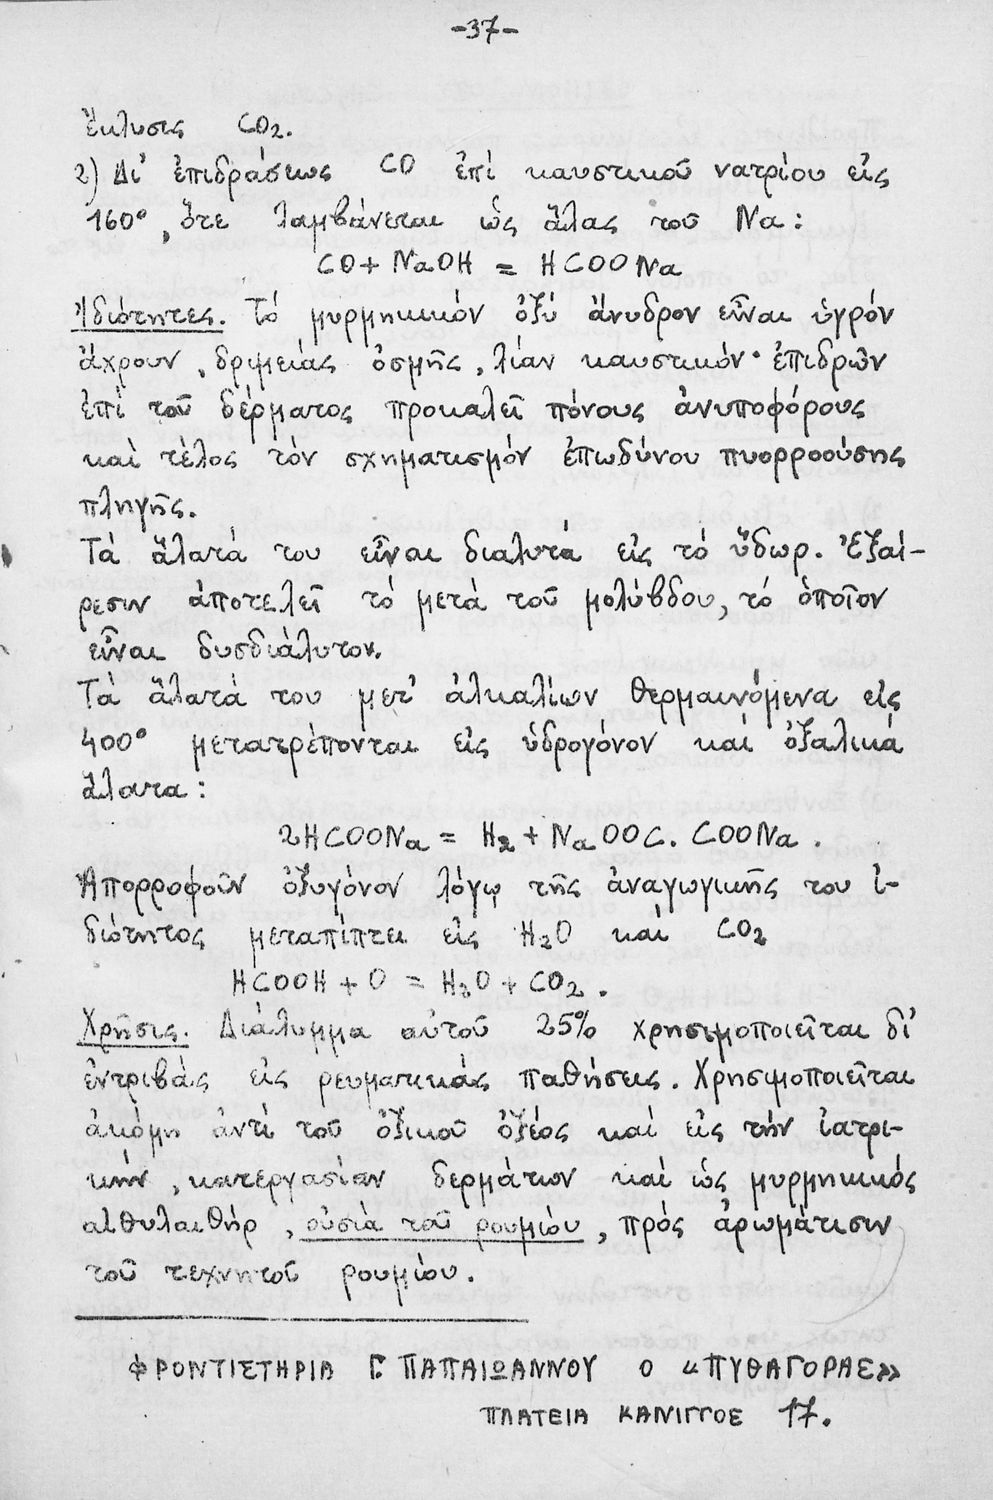 -37-
ἔκλυσις CO₂.
2) Δι' ἐπιδράσεως CO ἐπί καυστικοῦ νατρίου εἰς
160°, ὅτε λαμβάνεται ὡς ἅλας τοῦ Na:
CO + NaOH = HCOONa
Ἰδιότητες. Τό μυρμηκικόν ὀξύ ἄνυδρον εἶναι ὑγρόν
ἄχρουν, δριμείας ὀσμῆς, λίαν καυστικόν· ἐπιδρῶν
ἐπί τοῦ δέρματος προκαλεῖ πόνους ἀνυποφόρους
καί τέλος τόν σχηματισμόν ἐπωδύνου πυορροούσης
πληγῆς.
Τά ἅλατά του εἶναι διαλυτά εἰς τό ὕδωρ. Ἐξαί-
ρεσιν ἀποτελεῖ τό μετά τοῦ μολύβδου, τό ὁποῖον
εἶναι δυσδιάλυτον.
Τά ἅλατά του μετ' ἀλκαλίων θερμαινόμενα εἰς
400° μετατρέπονται εἰς ὑδρογόνον καί ὀξαλικά
ἅλατα:
2HCOONa = H₂ + NaOOC. COONa.
Ἀπορροφοῦν ὀξυγόνον λόγῳ τῆς ἀναγωγικῆς του ἰ-
διότητος μεταπίπτει εἰς H₂O καί CO₂
HCOOH + O = H₂O + CO₂.
Χρῆσις. Διάλυμμα αὐτοῦ 25% χρησιμοποιεῖται δι'
ἐντριβάς εἰς ρευματικάς παθήσεις. Χρησιμοποιεῖται
ἀκόμη ἀντί τοῦ ὀξικοῦ ὀξέος καί εἰς τήν ἰατρι-
κήν, κατεργασίαν δερμάτων καί ὡς μυρμηκικός
αἰθυλαιθήρ, οὐσία τοῦ ρουμίου, πρός ἀρωμάτισιν
τοῦ τεχνητοῦ ρουμίου.
ΦΡΟΝΤΙΣΤΗΡΙΑ Γ. ΠΑΠΑΙΩΑΝΝΟΥ Ο «ΠΥΘΑΓΟΡΑΣ»
ΠΛΑΤΕΙΑ ΚΑΝΙΓΓΟΣ 17.